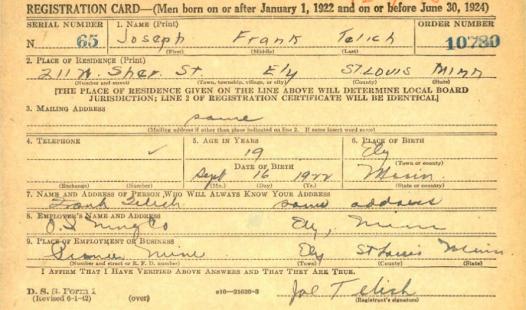 REGISTRATION CARD—(Men born on or after January 1, 1922 and on or before June 30, 1924)
SERIAL NUMBER 1. NAME (Print) ORDER NUMBER
N 65 Joseph Frank Telich 10780
(First) (Middle) (Last)
2. PLACE OF RESIDENCE (Print)
211 N. Sher. St Ely St Louis Minn
(Number and street) (Town, township, village, or city) (County) (State)
[THE PLACE OF RESIDENCE GIVEN ON THE LINE ABOVE WILL DETERMINE LOCAL BOARD
JURISDICTION; LINE 2 OF REGISTRATION CERTIFICATE WILL BE IDENTICAL]
3. MAILING ADDRESS
same
(Mailing address if other than place indicated on line 2. If same insert word same)
4. TELEPHONE 5. AGE IN YEARS 6. PLACE OF BIRTH
19 Ely
DATE OF BIRTH (Town or county)
Sept 16 1922 Minn
(Exchange) (Number) (Mo.) (Day) (Yr.) (State or country)
7. NAME AND ADDRESS OF PERSON WHO WILL ALWAYS KNOW YOUR ADDRESS
Frank Telich same address
8. EMPLOYER'S NAME AND ADDRESS
O. I. Mng Co Ely, Minn
9. PLACE OF EMPLOYMENT OR BUSINESS
Pioneer Mine Ely St Louis Minn
(Number and street or R. F. D. number) (Town) (County) (State)
I AFFIRM THAT I HAVE VERIFIED ABOVE ANSWERS AND THAT THEY ARE TRUE.
D. S. S. Form 1
(Revised 6-1-42) (over) 16—21630-2 Joe Telich
(Registrant's signature)